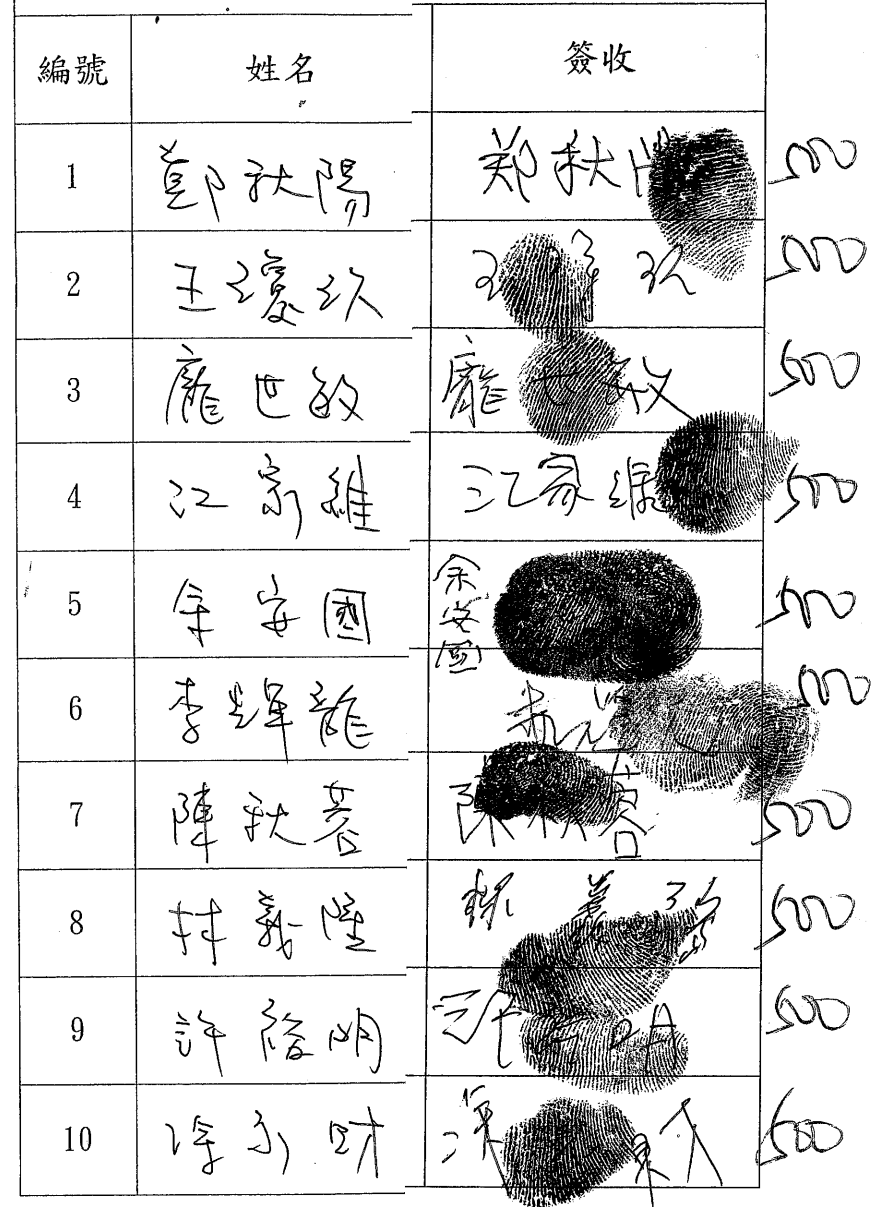 編號 姓名 簽收
1 鄭秋陽 郑秋 500
2 王瓊玖 玖 500
3 龐世敏 龐世敏 500
4 江家維 江家維 500
5 余安國 余安國 500
6 李輝龍 500
7 陳秋蓉 陳秋 500
8 林義隆 林義 500
9 許俊明 許 明 500
10 財 500